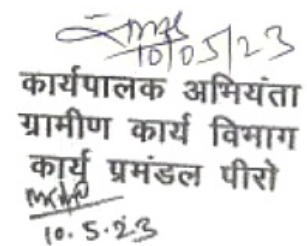 10/05/23
कार्यपालक अभियंता
ग्रामीण कार्य विभाग
कार्य प्रमंडल पीरो
10.5.23